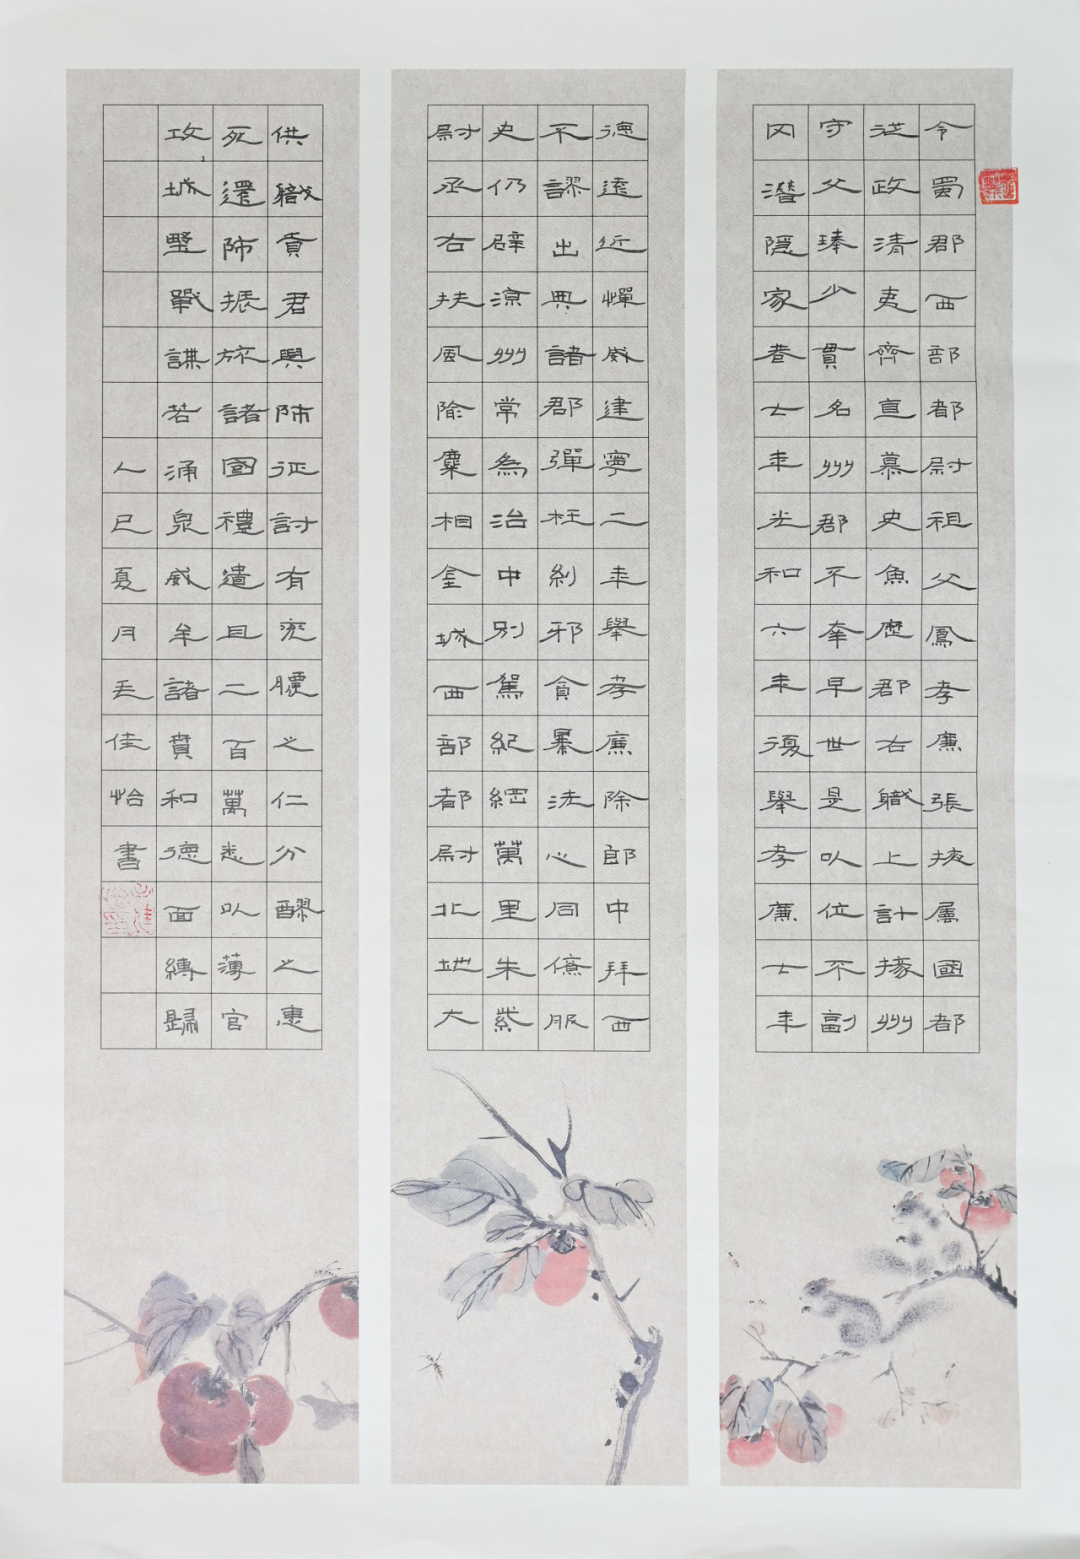 令蜀郡西部都尉祖父鳳孝廉張掖屬國都
從政清夷齊直慕史魚歷郡右職上計掾州
守父琫少貫名州郡不幸早世是以位不副
冈潛隱家巷七年光和六年復舉孝廉七年
德遠近憚威建寧二年舉孝廉除郎中拜西
不謬出典諸郡彈枉糾邪貪暴洗心同僚服
史仍辟涼州常為治中別駕紀綱萬里朱紫
尉丞右扶風隃麋相金城西部都尉北地大
供職貢君興師征討有兗膿之仁分醪之惠
死還師振旅諸國禮遺且二百萬悉以薄官
攻城墅戰謀若涌泉威牟諸賁和德面縛歸
人己夏月孟佳怡書